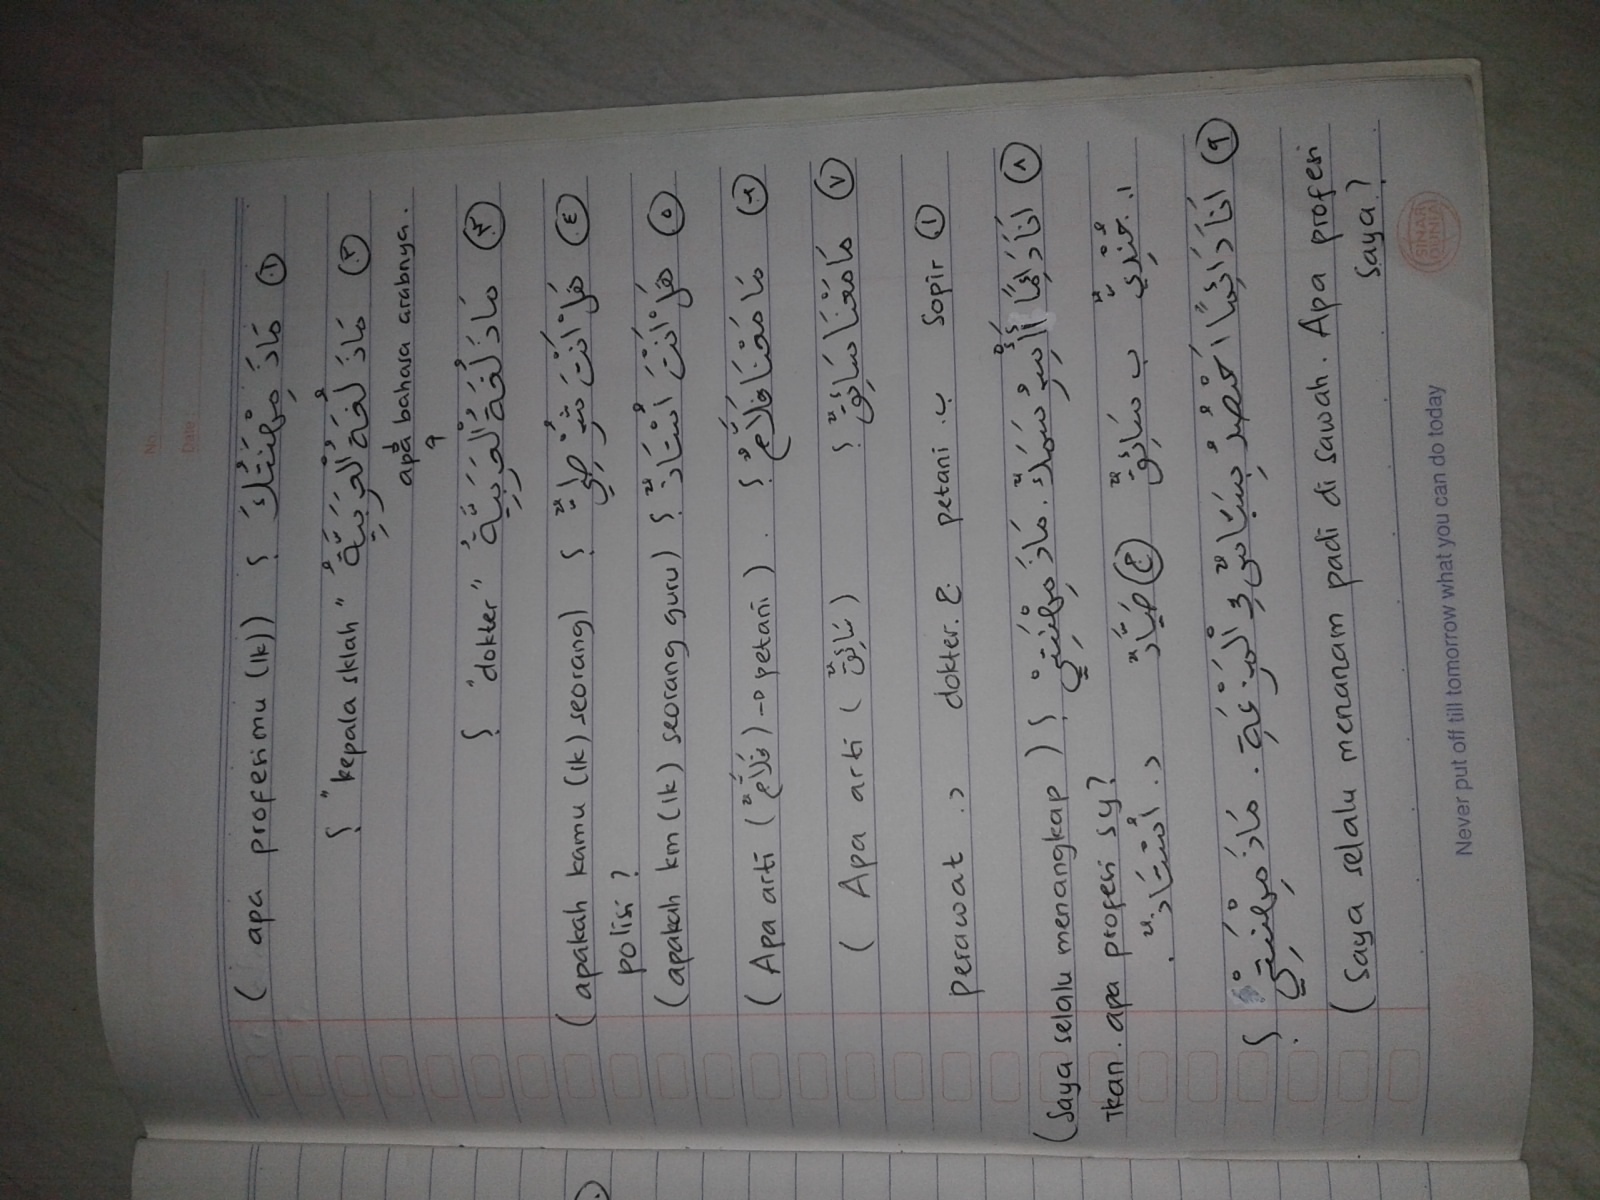 No
Date
① مَاذَ مِهْنَتُكَ ؟ (apa profesimu (lk))
② مَاذَ لُغَةُ الْعَرَبِيَّةُ "kepala sklah" ؟
apa bahasa arabnya.
③ مَاذَ لُغَةُ الْعَرَبِيَّةُ "dokter" ؟
④ هَلْ أَنْتَ شُرْطِيٌّ ؟ (apakah kamu (lk) seorang)
polisi ?
⑤ هَلْ أَنْتَ أُسْتَاذٌ ؟ (apakah km (lk) seorang guru)
⑥ مَا مَعْنَا فَلَّاحٌ ؟ . (Apa arti (فَلَّاحٌ) → petani)
٧ مَا مَعْنَا سَائِقٌ ؟ ( Apa arti ( سَائِقٌ )
① Sopir ب. petani ع. dokter د. perawat
٨ أَنَا دَائِمًا السِرُ سَمَكٌ. مَاذَ مِهْنَتِيْ ؟ (Saya selalu menangkap)
ا. جُنْدِيٌّ ب سَائِقٌ ج صَيَّادٌ
Ikan. apa profesi sy?
د. اُسْتَاذٌ.
٩ أَنَا دَائِمًا أَحْصُدُ بُسْتَانٌ فِي الْمَزْرَعَةِ . مَاذَ مِهْنَتِيْ
؟
(Saya selalu menanam padi di sawah. Apa profesi
Saya?
SINAR DUNIA
Never put off till tomorrow what you can do today